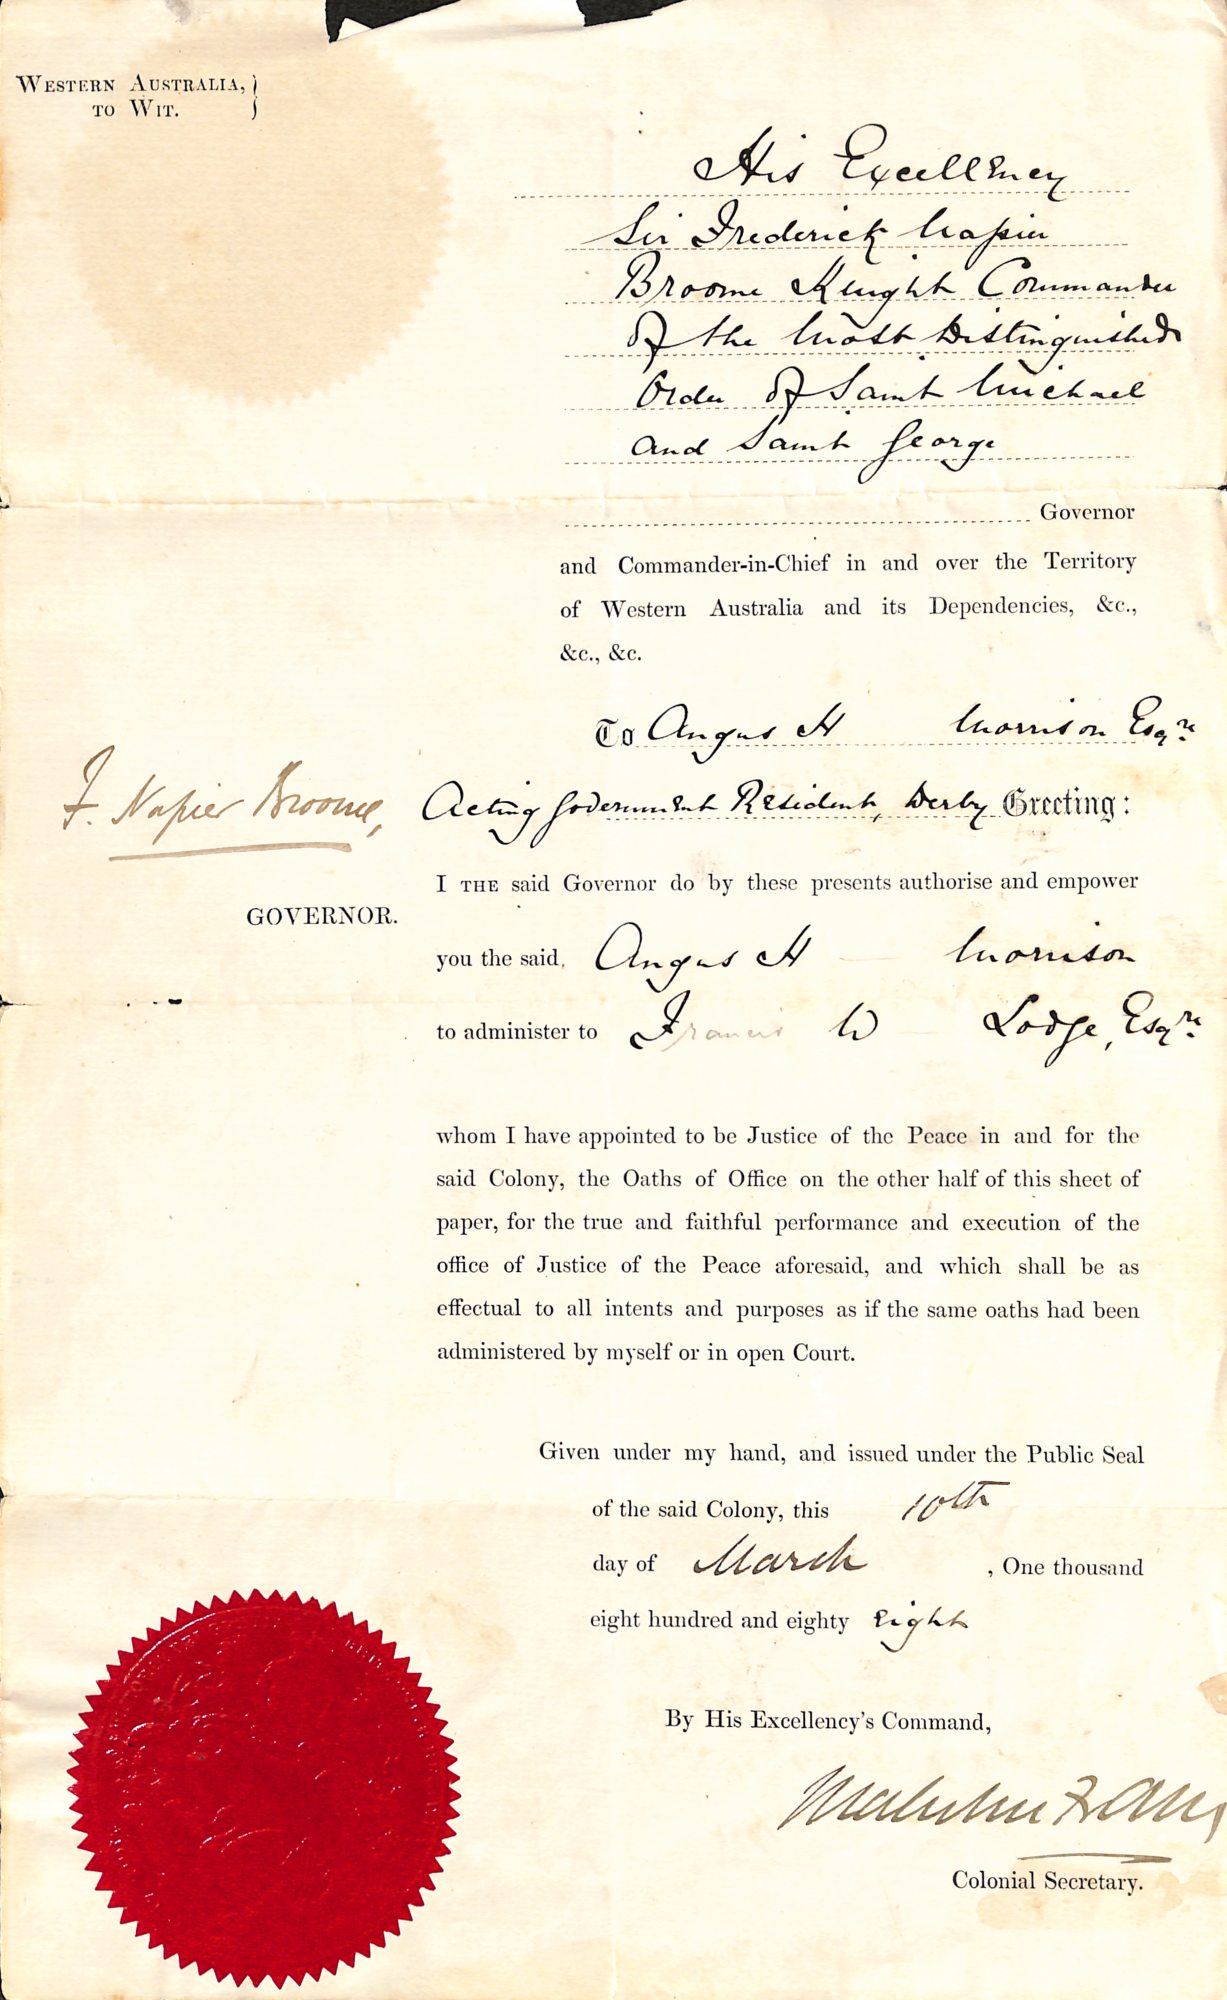 WESTERN AUSTRALIA,
TO WIT.
His Excellency
Sir Frederick Napier
Broome Knight Commander
of the Most Distinguished
Order of Saint Michael
and Saint George
Governor
and Commander-in-Chief in and over the Territory
of Western Australia and its Dependencies, &c.,
&c., &c.
To Angus H Morrison Esqre
F. Napier Broome,
Acting Government Resident, Derby Greeting:
I THE said Governor do by these presents authorise and empower
GOVERNOR.
you the said, Angus H Morrison
to administer to Francis W Lodge, Esqre
whom I have appointed to be Justice of the Peace in and for the
said Colony, the Oaths of Office on the other half of this sheet of
paper, for the true and faithful performance and execution of the
office of Justice of the Peace aforesaid, and which shall be as
effectual to all intents and purposes as if the same oaths had been
administered by myself or in open Court.
Given under my hand, and issued under the Public Seal
of the said Colony, this 10th
day of March , One thousand
eight hundred and eighty eight
By His Excellency's Command,
Malcolm Fraser
Colonial Secretary.